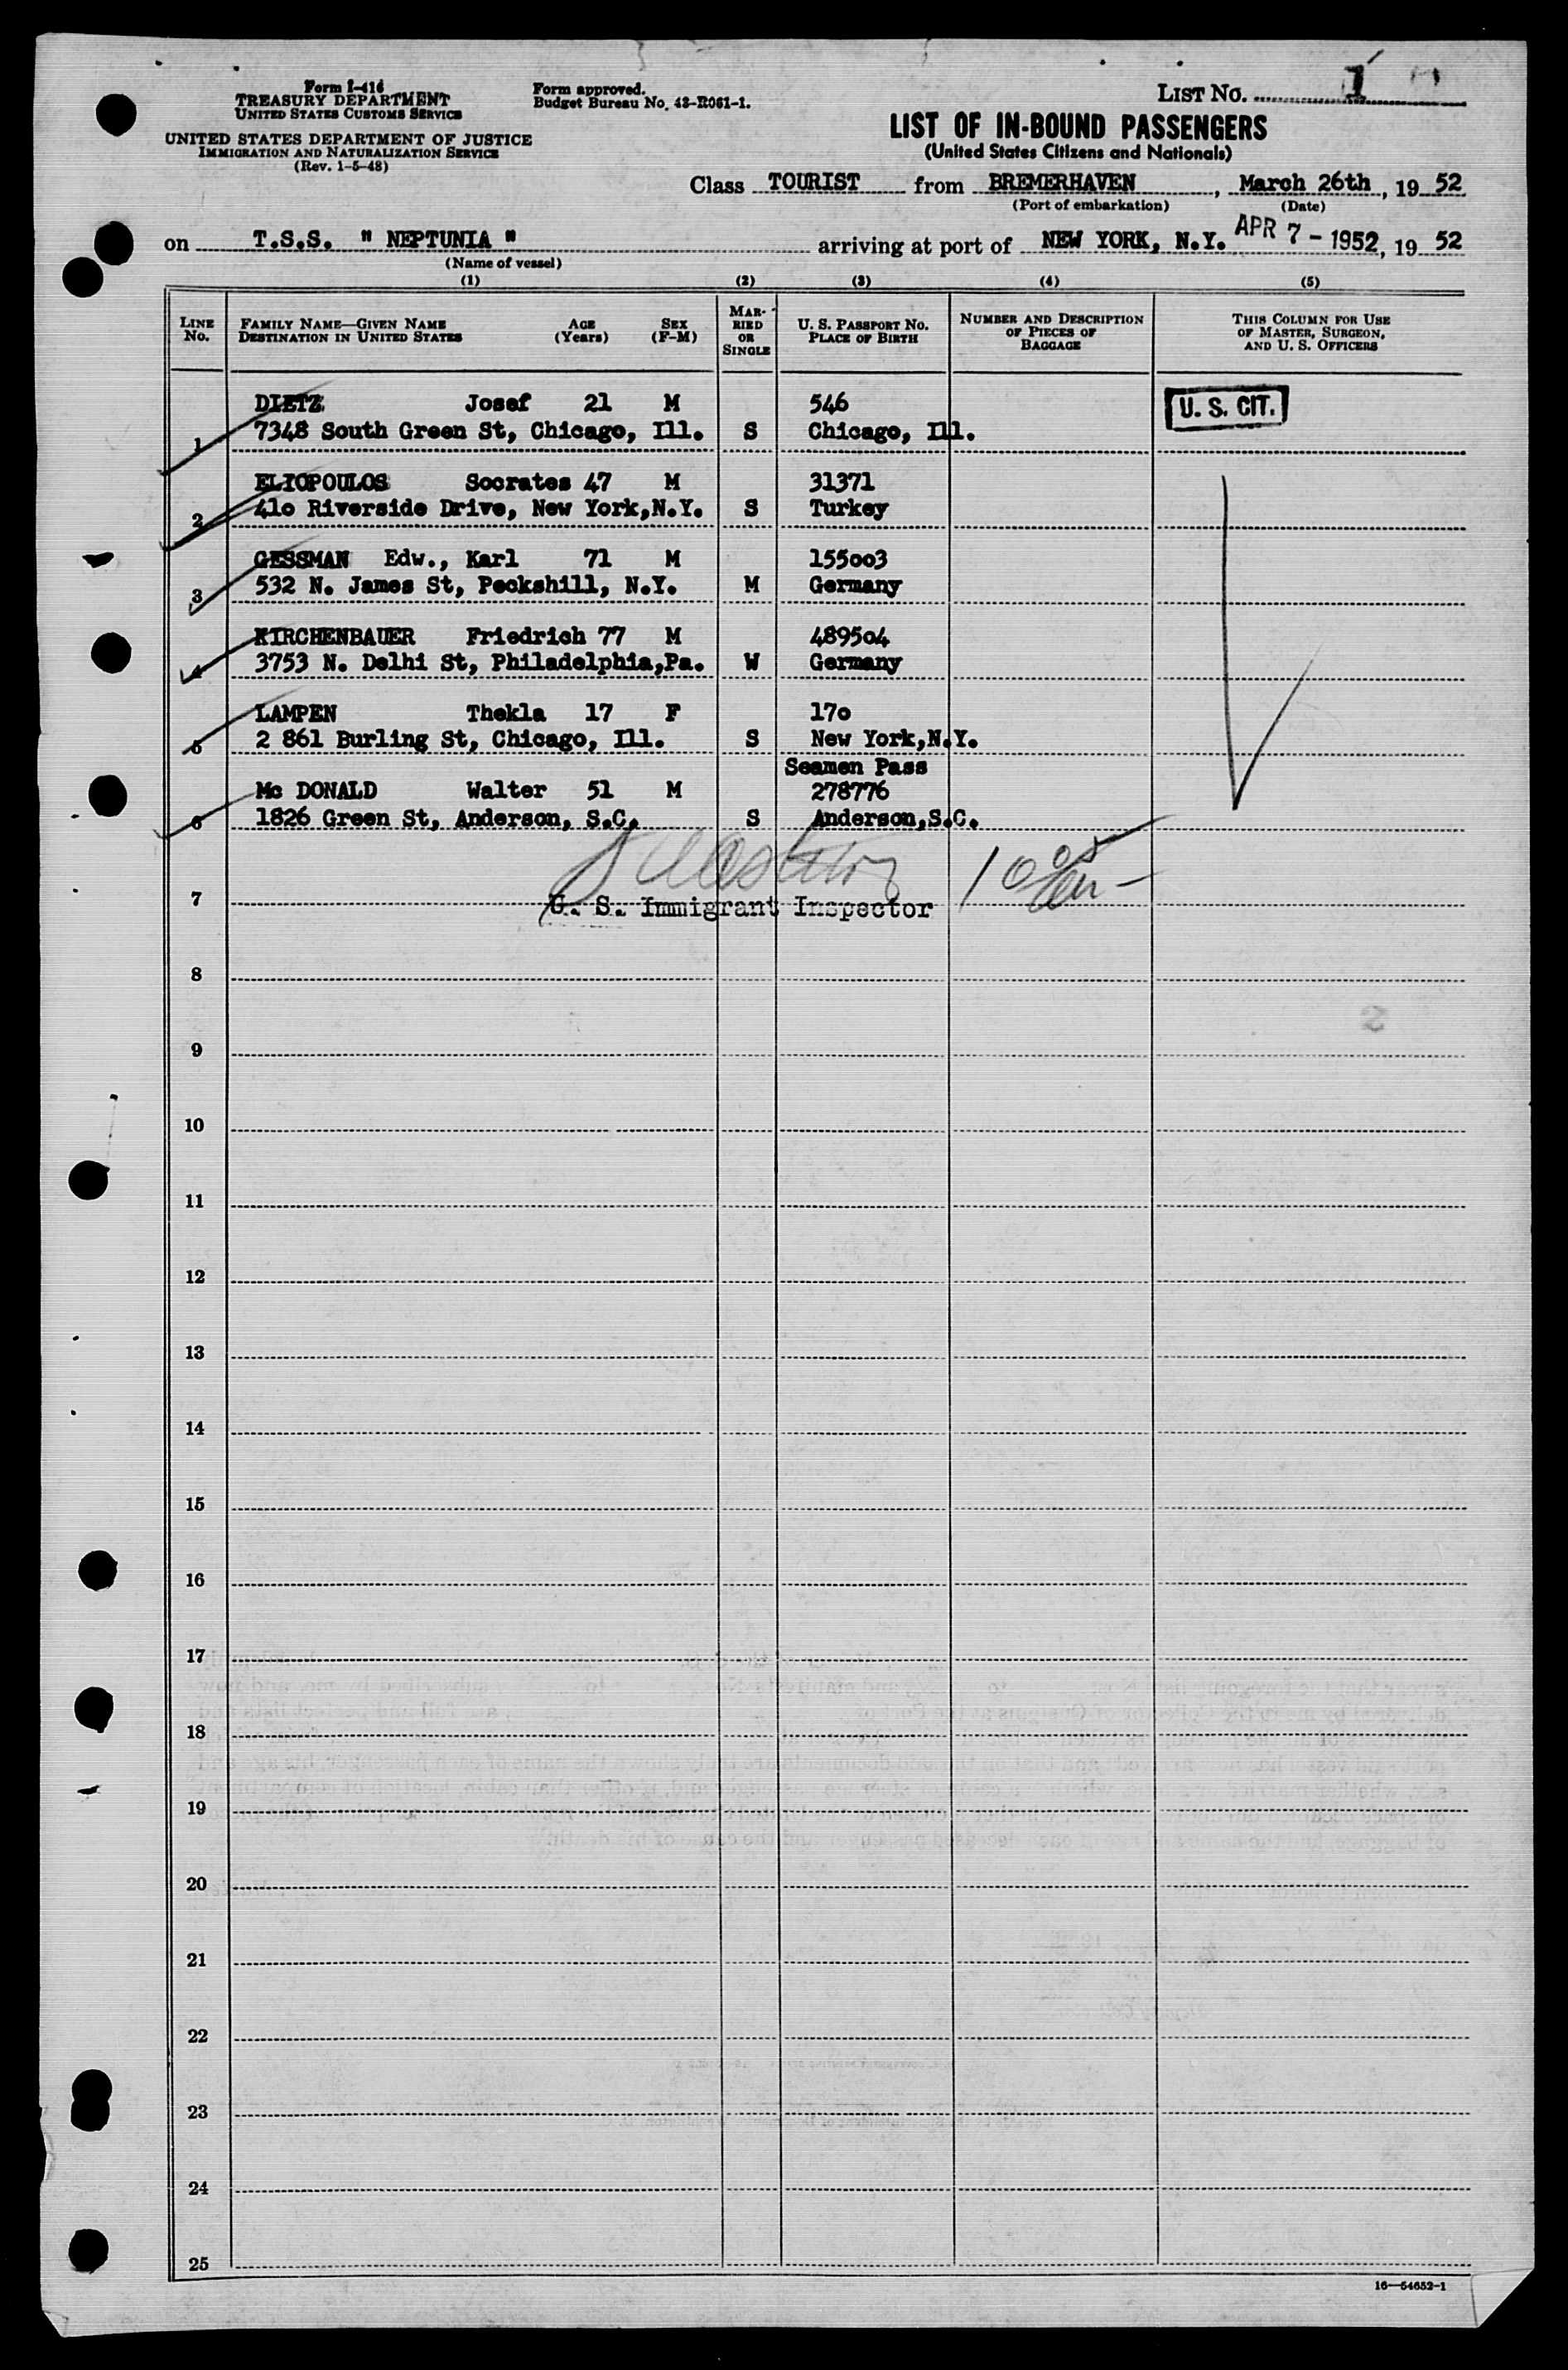 Form I-416
TREASURY DEPARTMENT
UNITED STATES CUSTOMS SERVICE
UNITED STATES DEPARTMENT OF JUSTICE
IMMIGRATION AND NATURALIZATION SERVICE
(Rev. 1-5-48)
Form approved.
Budget Bureau No. 43-R061-1.
LIST NO. 1
LIST OF IN-BOUND PASSENGERS
(United States Citizens and Nationals)
Class TOURIST from BREMERHAVEN, March 26th, 19 52
(Port of embarkation) (Date)
on T.S.S. " NEPTUNIA " arriving at port of NEW YORK, N.Y. APR 7 - 1952, 19 52
(Name of vessel)
(1) (2) (3) (4) (5)
LINE No. FAMILY NAME—GIVEN NAME DESTINATION IN UNITED STATES AGE (Years) SEX (F-M) MARRIED OR SINGLE U. S. PASSPORT NO. PLACE OF BIRTH NUMBER AND DESCRIPTION OF PIECES OF BAGGAGE THIS COLUMN FOR USE OF MASTER, SURGEON, AND U. S. OFFICERS
DIETZ Josef 21 M 546 U. S. CIT.
1 7348 South Green St, Chicago, Ill. S Chicago, Ill.
ELIOPOULOS Socrates 47 M 31371
2 41o Riverside Drive, New York,N.Y. S Turkey
GESSMAN Edw., Karl 71 M 155oo3
3 532 N. James St, Peckshill, N.Y. M Germany
KIRCHENBAUER Friedrich 77 M 4895o4
4 3753 N. Delhi St, Philadelphia,Pa. W Germany
LAMPEN Thekla 17 F 17o
5 2 861 Burling St, Chicago, Ill. S New York,N.Y.
Seamen Pass
Mc DONALD Walter 51 M 278776
6 1826 Green St, Anderson, S.C. S Anderson,S.C.
7 U. S. Immigrant Inspector
8
9
10
11
12
13
14
15
16
17
18
19
20
21
22
23
24
25
16—54652-1